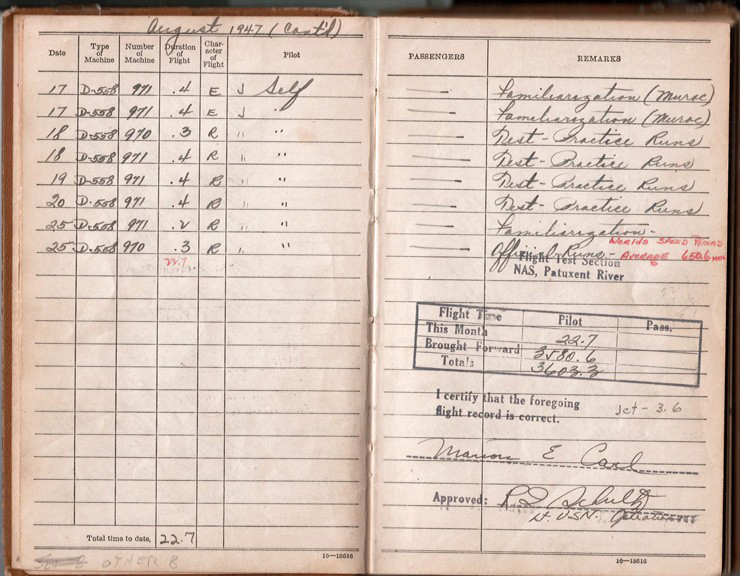 August 1947 (Cont'd)
Date Type of Machine Number of Machine Duration of Flight Character of Flight Pilot PASSENGERS REMARKS
17 D-558 971 .4 E J Self — Familiarization (Muroc)
17 D-558 971 .4 E J " — Familiarization (Muroc)
18 D-558 970 .3 R " " — Test - Practice Runs
18 D-558 971 .4 R " " — Test - Practice Runs
19 D-558 971 .4 R " " — Test - Practice Runs
20 D-558 971 .4 R " " — Test - Practice Runs
25 D-558 971 .2 R " " — Familiarization -
25 D-558 970 .3 R " " — Official Runs - WORLDS SPEED RECORD
AVERAGE 650.6 MPH
22.7
Flight Test Section
NAS, Patuxent River
Flight Time Pilot Pass.
This Month 22.7
Brought Forward 3580.6
Totals 3603.3
I certify that the foregoing
flight record is correct.
Jet - 3.6
Marion E Carl
Approved: R.L. Schultz
Lt. USN. Operations
Total time to date, 22.7
16—18616 16—18616
OTHER 8